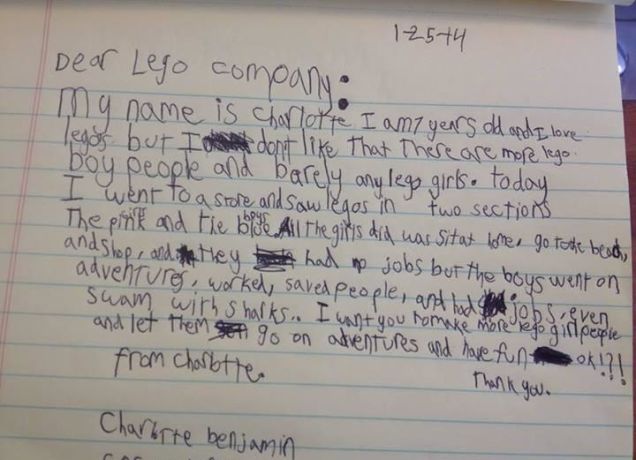 1-25-14
Dear Lego company:
My name is Charlotte I am 7 years old and I love
legos but I dont like that there are more lego
boy people and barely any lego girls. today
I went to a store and saw legos in two sections
The pink girls and the blue boys All the girls did was sit at home, go to the beach,
and shop, and they had no jobs but the boys went on
adventures, worked, saved people, and had jobs, even
swam with sharks.. I want you to make more lego girl people
and let them go on adventures and have fun ok!?!
from Charlotte. Thank you.
Charlotte benjamin